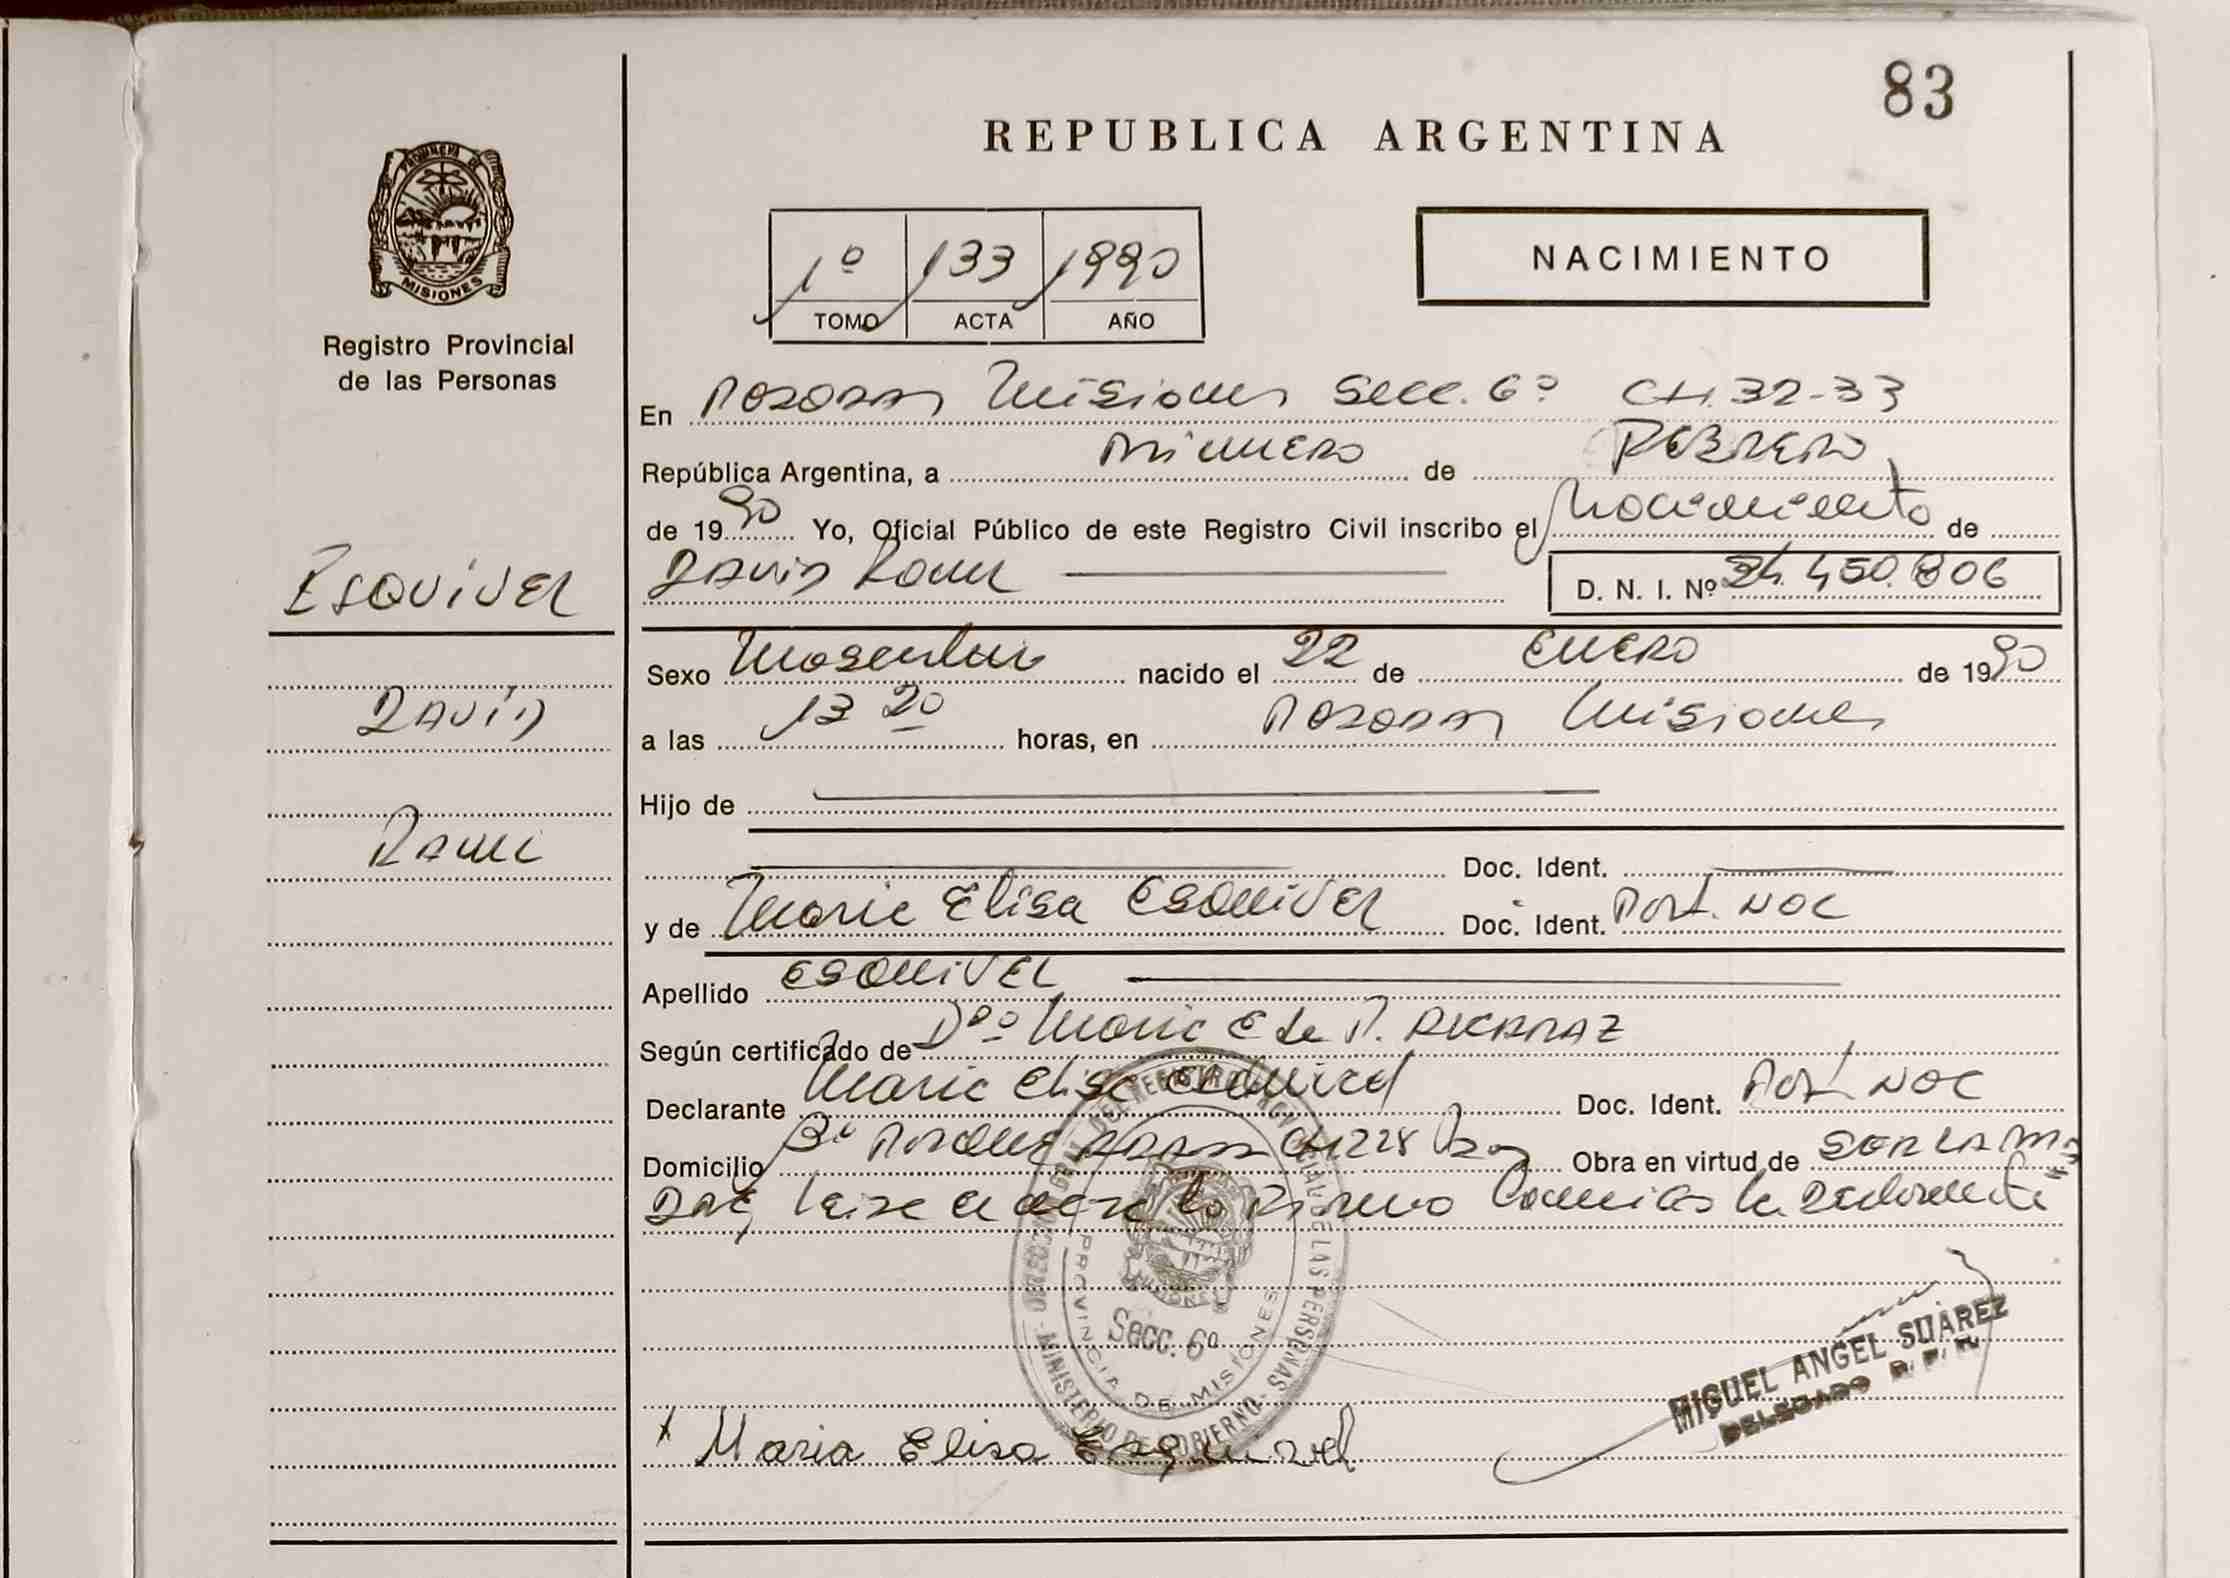 83
REPUBLICA ARGENTINA
PROVINCIA DE
MISIONES
Registro Provincial
de las Personas
1º 133 1990
TOMO ACTA AÑO
NACIMIENTO
En Posadas Misiones Secc. 6ª CH. 32-33
República Argentina, a Primero de FEBRERO
de 1990 Yo, Oficial Público de este Registro Civil inscribo el Nacimiento de
ESQUIVEL
DAVID RAUL D. N. I. Nº 34.450.806
Sexo Masculino nacido el 22 de ENERO de 1990
DAVID
a las 13 20 horas, en Posadas Misiones
Hijo de
RAUL
Doc. Ident.
y de Maria Elisa ESQUIVEL Doc. Ident. Port. NOC
Apellido ESQUIVEL
Según certificado de Dra Maria E de P.
Declarante Maria Elisa Esquivel Doc. Ident. Port NOC
Domicilio Bº CH 228 Obra en virtud de SER LA MA
DRE, Leida el acta la Firma Conmigo la Declarante
DEL REGISTRO PROVINCIAL DE LAS PERSONAS
MINISTERIO DE GOBIERNO
PROVINCIA DE MISIONES
Secc. 6ª
MIGUEL ANGEL SUÁREZ
DELEGADO R. P. P.
Maria Elisa Esquivel